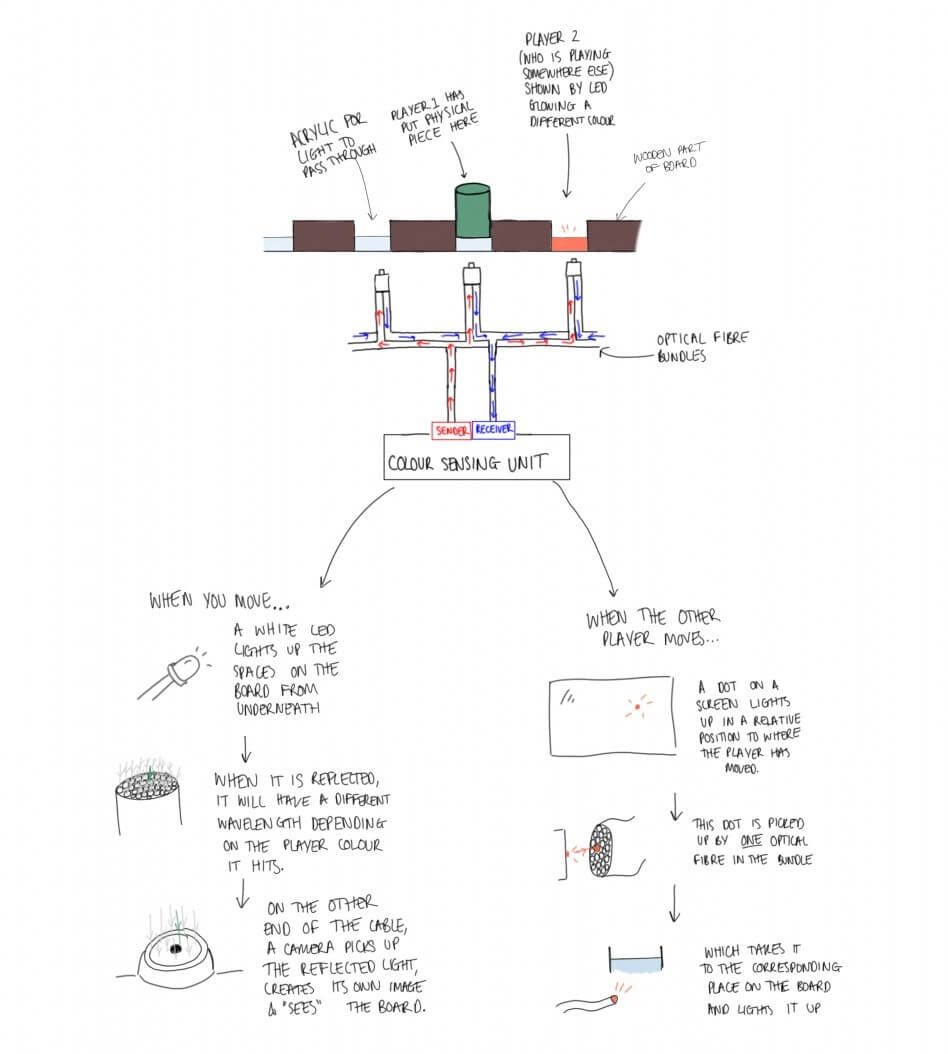 PLAYER 2
(WHO IS PLAYING
SOMEWHERE ELSE)
SHOWN BY LED
GLOWING A
DIFFERENT COLOUR
PLAYER 1 HAS
PUT PHYSICAL
PIECE HERE
ACRYLIC FOR
LIGHT TO
PASS THROUGH
WOODEN PART
OF BOARD
OPTICAL FIBRE
BUNDLES
SENDER
RECEIVER
COLOUR SENSING UNIT
WHEN YOU MOVE...
A WHITE LED
LIGHTS UP THE
SPACES ON THE
BOARD FROM
UNDERNEATH
WHEN IT IS REFLECTED,
IT WILL HAVE A DIFFERENT
WAVELENGTH DEPENDING
ON THE PLAYER COLOUR
IT HITS.
ON THE OTHER
END OF THE CABLE,
A CAMERA PICKS UP
THE REFLECTED LIGHT,
CREATES ITS OWN IMAGE
& "SEES" THE BOARD.
WHEN THE OTHER
PLAYER MOVES...
A DOT ON A
SCREEN LIGHTS
UP IN A RELATIVE
POSITION TO WHERE
THE PLAYER HAS
MOVED.
THIS DOT IS PICKED
UP BY ONE OPTICAL
FIBRE IN THE BUNDLE
WHICH TAKES IT
TO THE CORRESPONDING
PLACE ON THE BOARD
AND LIGHTS IT UP